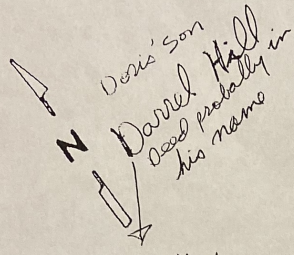 Doris' Son
Darrel Hill
Deed probally in
his name
N